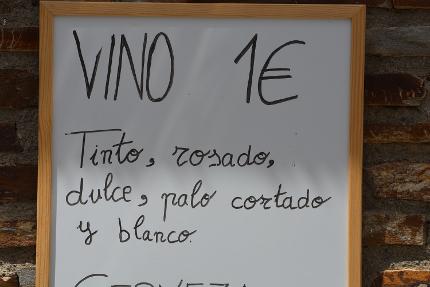 VINO 1€
Tinto, rosado,
dulce, palo cortado
y blanco.
CERVEZA